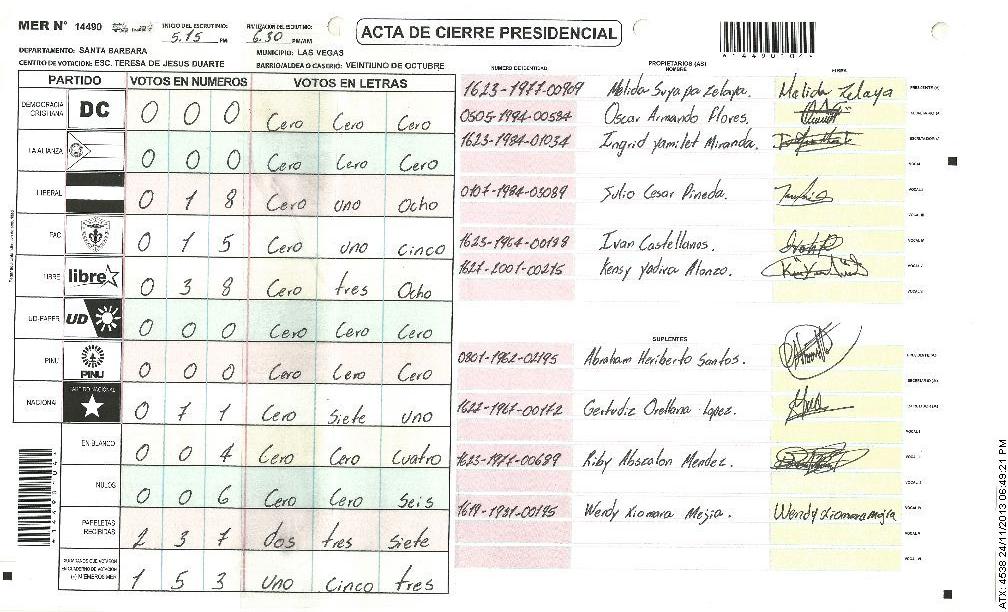 MER N° 14490
INICIO DEL ESCRUTINIO: 5.15 PM
FINALIZACION DEL ESCRUTINIO: 6.30 PM/AM
ACTA DE CIERRE PRESIDENCIAL
DEPARTAMENTO: SANTA BARBARA
MUNICIPIO: LAS VEGAS
CENTRO DE VOTACION: ESC. TERESA DE JESUS DUARTE
BARRIO/ALDEA O CASERIO: VEINTIUNO DE OCTUBRE
PARTIDO VOTOS EN NUMEROS VOTOS EN LETRAS
DEMOCRACIA CRISTIANA DC 0 0 0 Cero Cero Cero
LA ALIANZA 0 0 0 Cero Cero Cero
LIBERAL 0 1 8 Cero uno Ocho
PAC 0 1 5 Cero uno cinco
LIBRE libre 0 3 8 Cero tres Ocho
UD-FAPER UD 0 0 0 Cero Cero Cero
PINU PINU 0 0 0 Cero Cero Cero
NACIONAL PARTIDO NACIONAL 0 7 1 Cero Siete uno
EN BLANCO 0 0 4 Cero Cero Cuatro
NULOS 0 0 6 Cero Cero Seis
PAPELETAS RECIBIDAS 2 3 7 dos tres Siete
1 5 3 uno Cinco tres
NUMERO DE IDENTIDAD PROPIETARIOS (AS) NOMBRE FIRMA
1623-1977-00909 Melida Suyapa Zelaya. Melida Zelaya PRESIDENTE (A)
0505-1994-00584 Oscar Armando Flores. SECRETARIO (A)
1623-1984-01034 Ingrid yamilet Miranda. ESCRUTADOR (A)
VOCAL I
0107-1984-03089 Julio Cesar Pineda. VOCAL II
VOCAL III
1623-1964-00198 Ivan Castellanos. VOCAL IV
1627-2001-00215 Kensy Yadira Alonzo. VOCAL V
VOCAL VI
SUPLENTES
0801-1962-02195 Abraham Heriberto Santos. PRESIDENTE (A)
SECRETARIO (A)
1627-1967-00172 Gertudiz Orellana Lopez. ESCRUTADOR (A)
VOCAL I
1623-1971-00689 Riby Abszalon Mendez. VOCAL II
VOCAL III
1619-1981-00195 Wendy Xiomara Mejia. Wendy Xiomara Mejia VOCAL IV
VOCAL V
VOCAL VI
ATX: 4538 24/11/2013 06:49:21 PM